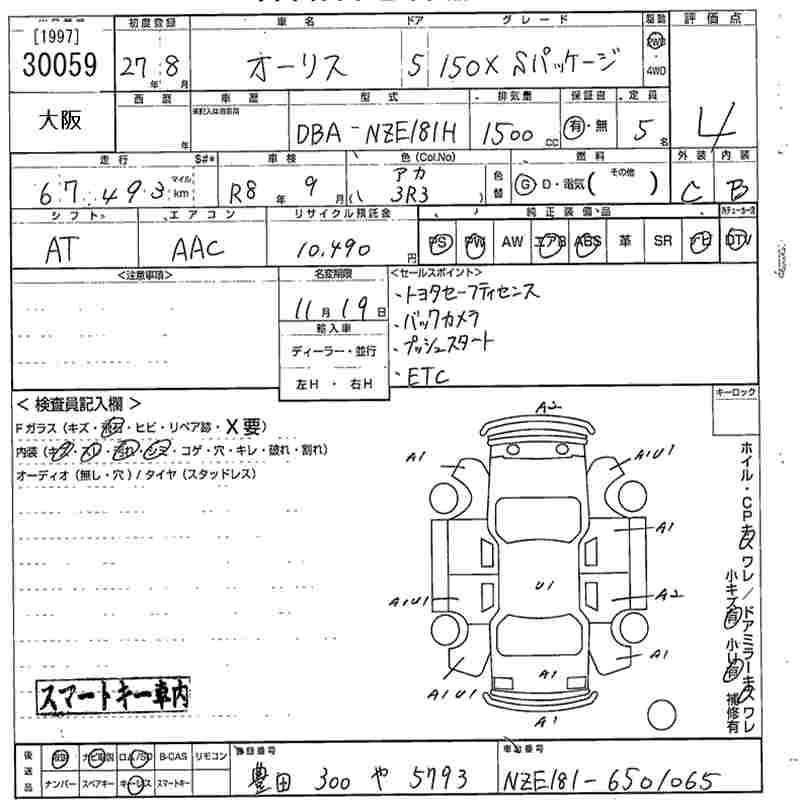 [1997] 初度登録 車名 ドア グレード 駆動 評価点
30059 27年8月 オーリス 5 150X Sパッケージ 2WD 4WD 4
大阪 車歴 型式 排気量 保証書 定員
年 DBA-NZE181H 1500cc 有・無 5名
走行 S#* 車検 色(Col.No) 色替 燃料 外装 内装
67,493 マイル km R8年9月 アカ 3R3 G D・電気( その他 ) C B
シフト エアコン リサイクル預託金 純正装備品
AT AAC 10,490円 PS PW AW エアB ABS 革 SR ナビ DTV
<注意事項> 名変期限 <セールスポイント>
11月19日 ・トヨタセーフティセンス
輸入車 ・バックカメラ
ディーラー・並行 ・プッシュスタート
左H・右H ・ETC
<検査員記入欄> キーロック
Fガラス(キズ・飛石・ヒビ・リペア跡・X要)
内装(キズ・スレ・汚れ・シミ・コゲ・穴・キレ・破れ・割れ)
オーディオ(無し・穴)/タイヤ(スタッドレス)
A2
A1 A1U1
A1
A1U1 U1 A2
A1U1 A1 A1
A1
ホイル・CPキズ ワレ/ドアミラーキズ ワレ
小キズ有 小U有 補修有
スマートキー車内
後送品 ナビ電図 ロム/SD B-CAS リモコン 登録番号 車台番号
ナンバー スペアキー キーレス スマートキー 豊田 300 や 5793 NZE181-6501065